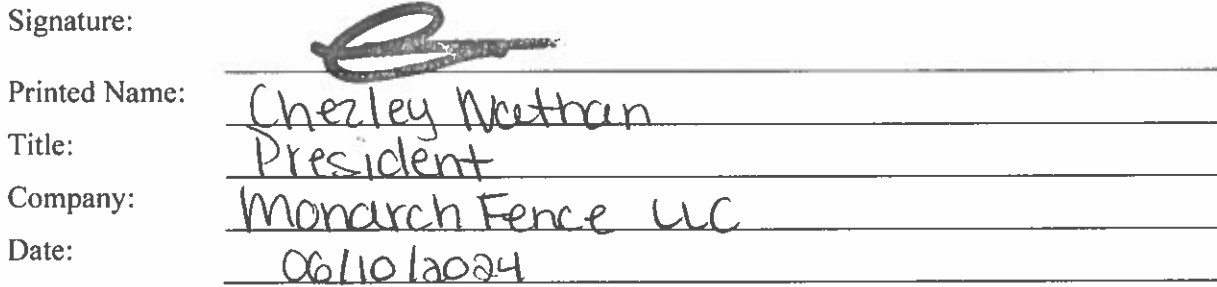 Signature:
Printed Name: Chezley Nathan
Title: President
Company: Monarch Fence LLC
Date: 06/10/2024